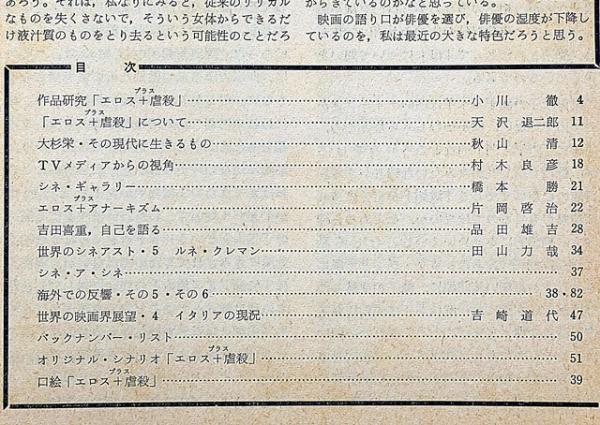 あろう。それは、私なりにみると、従来のリリカル
なものを失くさないで、そういう女体からできるだ
け液汁質のものをとり去るという可能性のことだろ
からきているのかなと思っている。
映画の語り口が俳優を選び、俳優の湿度が下降し
ているのを、私は最近の大きな特色だろうと思う。
目次
作品研究「エロス＋虐殺」……小川徹 4
「エロス＋虐殺」について……天沢退二郎 11
大杉栄・その現代に生きるもの……秋山清 12
TVメディアからの視角……村木良彦 18
シネ・ギャラリー……橋本勝 21
エロス＋アナーキズム……片岡啓治 22
吉田喜重，自己を語る……品田雄吉 28
世界のシネアスト・5　ルネ・クレマン……田山力哉 34
シネ・ア・シネ……37
海外での反響・その5・その6……38・82
世界の映画界展望・4　イタリアの現況……吉崎道代 47
バックナンバー・リスト……50
オリジナル・シナリオ「エロス＋虐殺」……51
口絵「エロス＋虐殺」……39